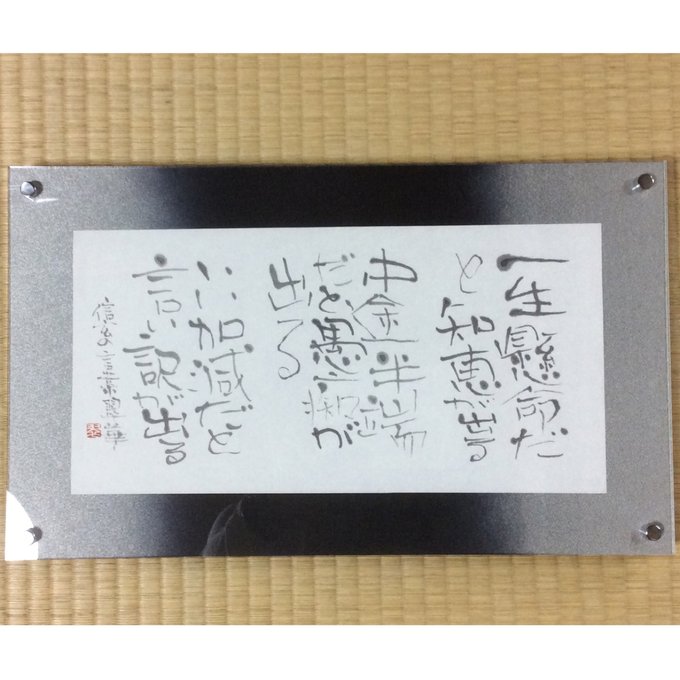 一生懸命だ
と知恵が出る
中途半端
だと愚痴が
出る
いい加減だと
言い訳が出る